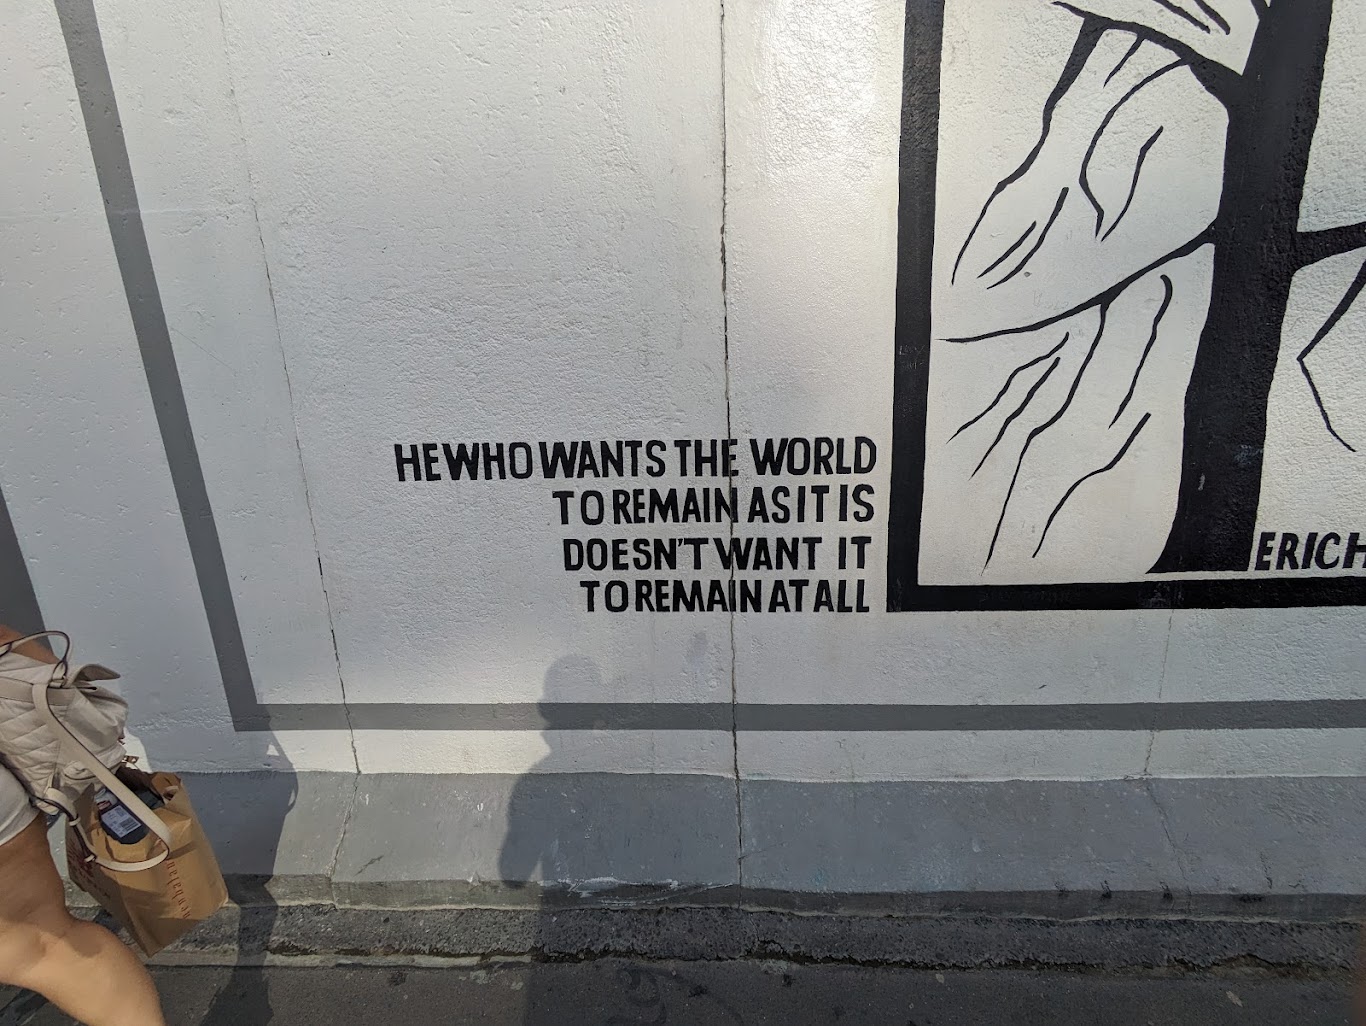 HE WHO WANTS THE WORLD
TO REMAIN AS IT IS
DOESN'T WANT IT
TO REMAIN AT ALL
ERICH